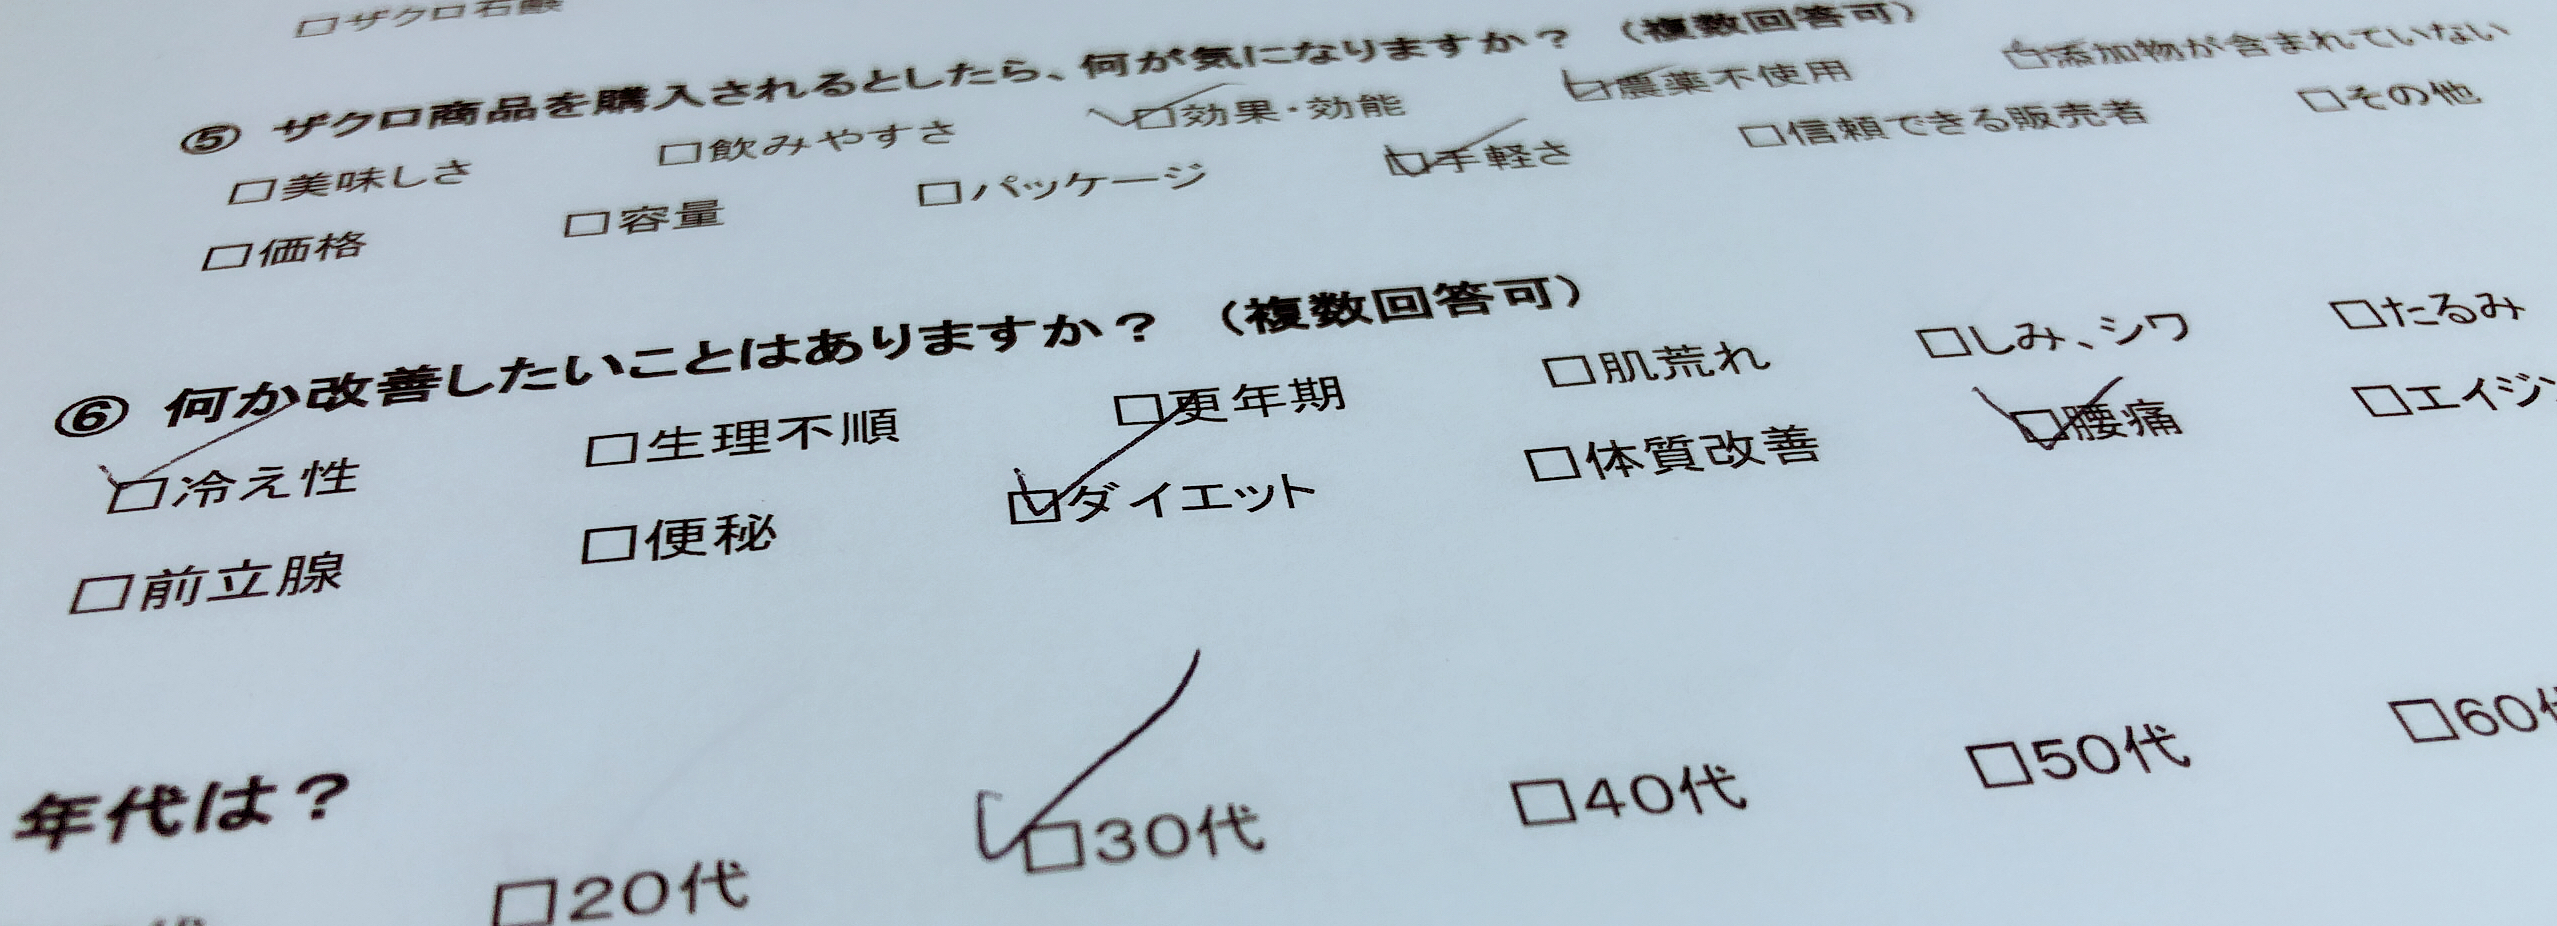 □ザクロ石鹸
⑤ ザクロ商品を購入されるとしたら、何が気になりますか？ （複数回答可）
□美味しさ □飲みやすさ ☑効果・効能 ☑農薬不使用 ☑添加物が含まれていない
□価格 □容量 □パッケージ ☑手軽さ □信頼できる販売者 □その他
⑥ 何か改善したいことはありますか？ （複数回答可）
☑冷え性 □生理不順 □更年期 □肌荒れ □しみ、シワ □たるみ
□前立腺 □便秘 ☑ダイエット □体質改善 ☑腰痛 □エイジン
年代は？
□20代 ☑30代 □40代 □50代 □60代